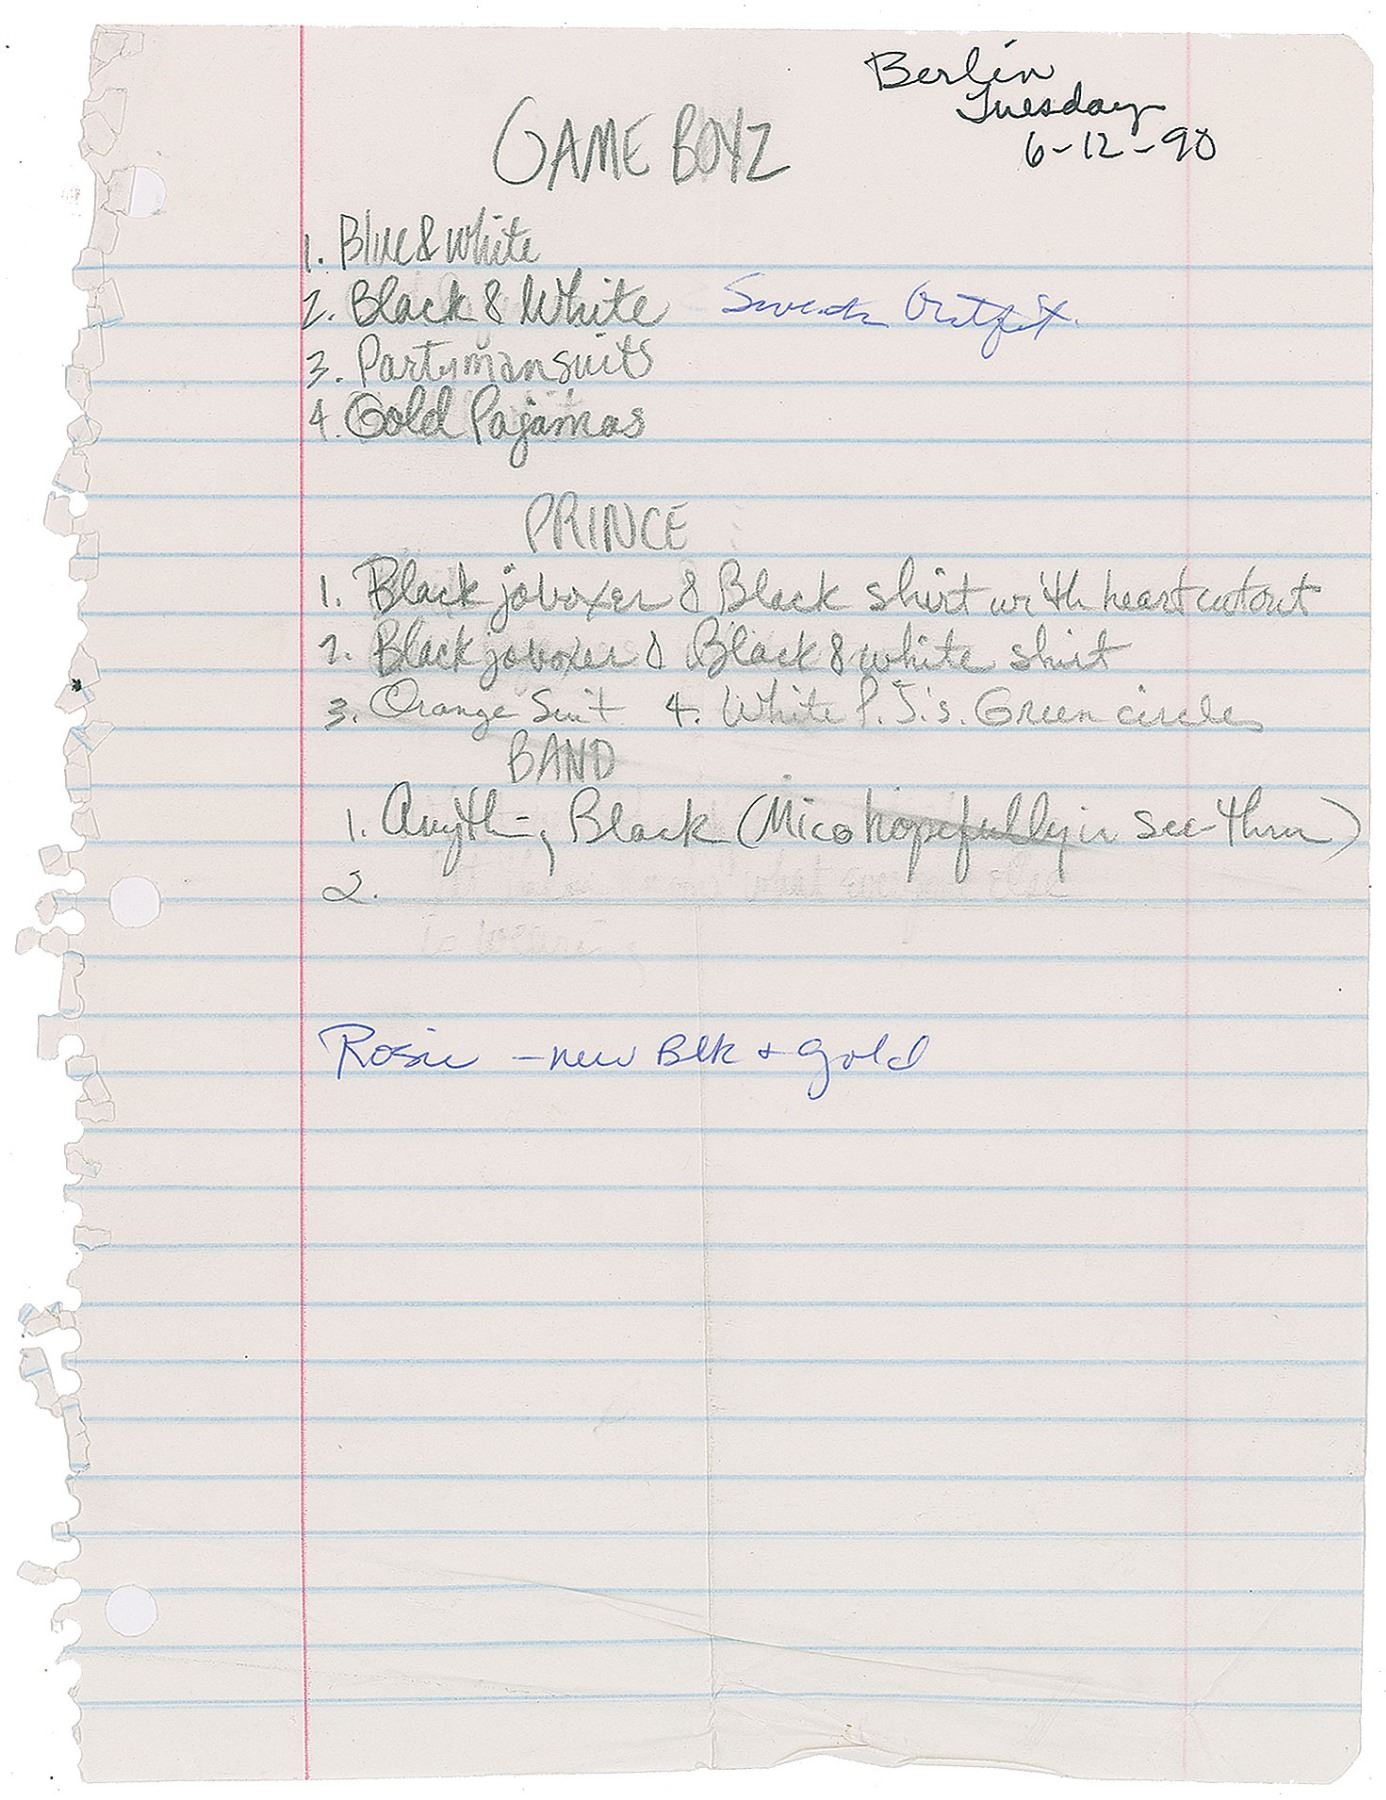 Berlin
Tuesday
6-12-90
GAME BOYZ
1. Blue & White
2. Black & White Sweat Outfit.
3. Partyman suits
4. Gold Pajamas
PRINCE
1. Black joboxer & Black shirt with heart cutout
2. Black joboxer & Black & white shirt
3. Orange Suit 4. White P.J.'s. Green circles
BAND
1. Anything Black (Mico hopefully in see-thru)
2.
is wearing
Rosie - new Blk + gold